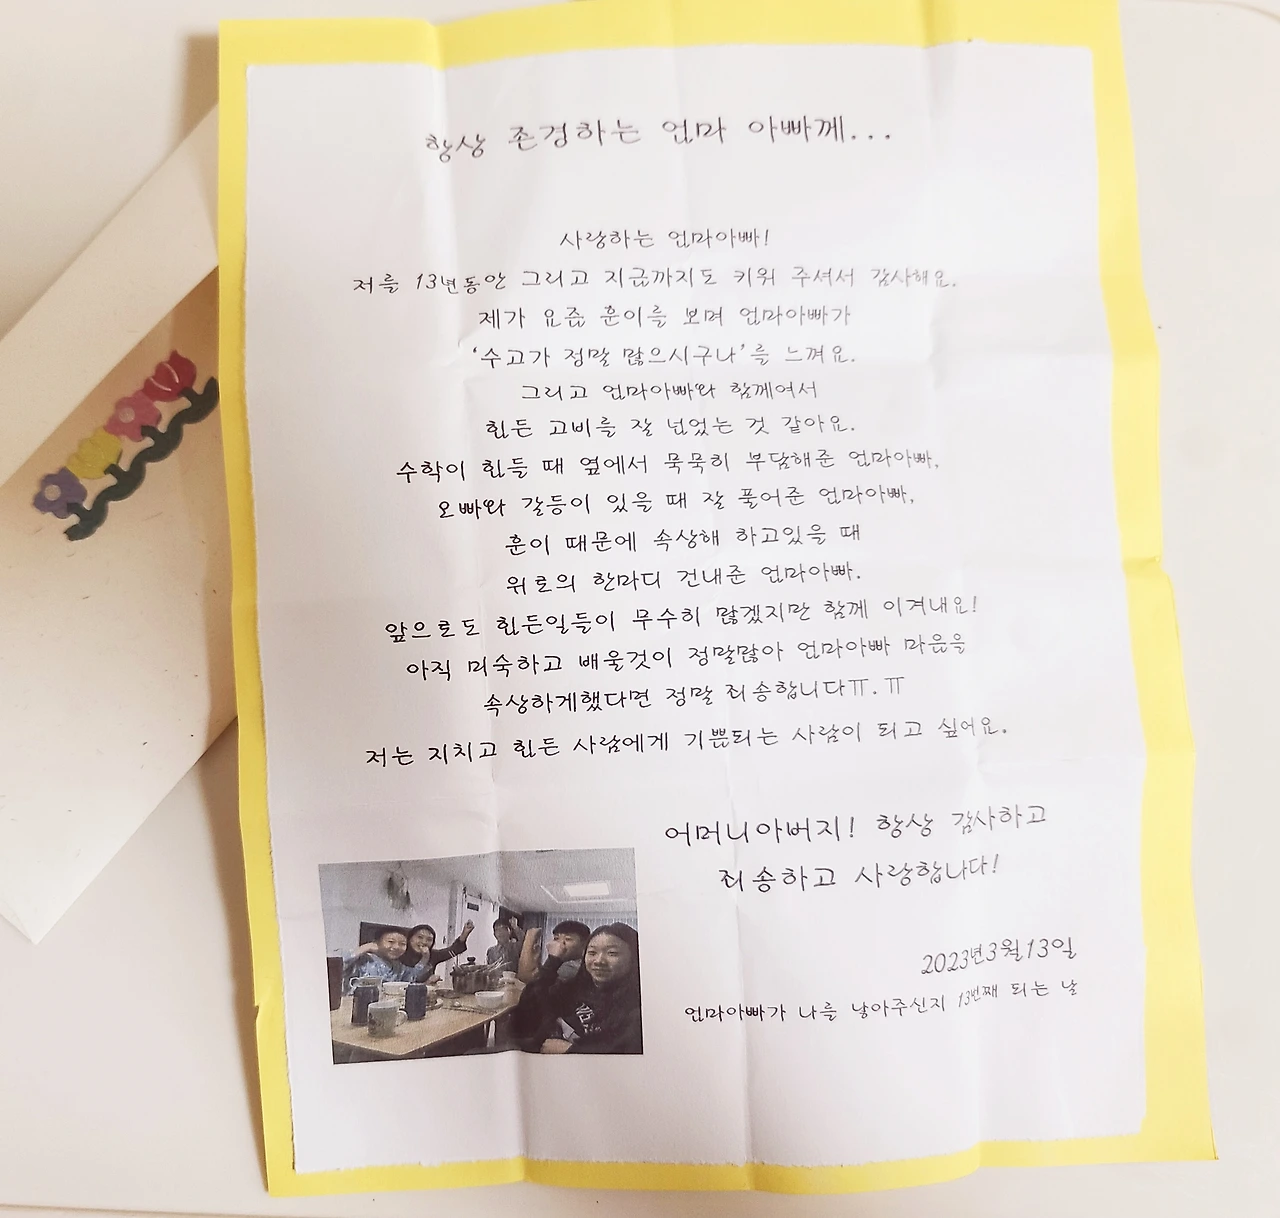 항상 존경하는 엄마 아빠께...
사랑하는 엄마아빠!
저를 13년동안 그리고 지금까지도 키워 주셔서 감사해요.
제가 요즘 훈이를 보며 엄마아빠가
‘수고가 정말 많으시구나’를 느껴요.
그리고 엄마아빠와 함께여서
힘든 고비를 잘 넘었는 것 같아요.
수학이 힘들 때 옆에서 묵묵히 부담해준 엄마아빠,
오빠와 갈등이 있을 때 잘 풀어준 엄마아빠,
훈이 때문에 속상해 하고있을 때
위로의 한마디 건내준 엄마아빠.
앞으로도 힘든일들이 무수히 많겠지만 함께 이겨내요!
아직 미숙하고 배울것이 정말많아 엄마아빠 마음을
속상하게했다면 정말 죄송합니다ㅠ.ㅠ
저는 지치고 힘든 사람에게 기쁨되는 사람이 되고 싶어요.
어머니아버지! 항상 감사하고
죄송하고 사랑합니다!
2023년3월13일
엄마아빠가 나를 낳아주신지 13번째 되는 날